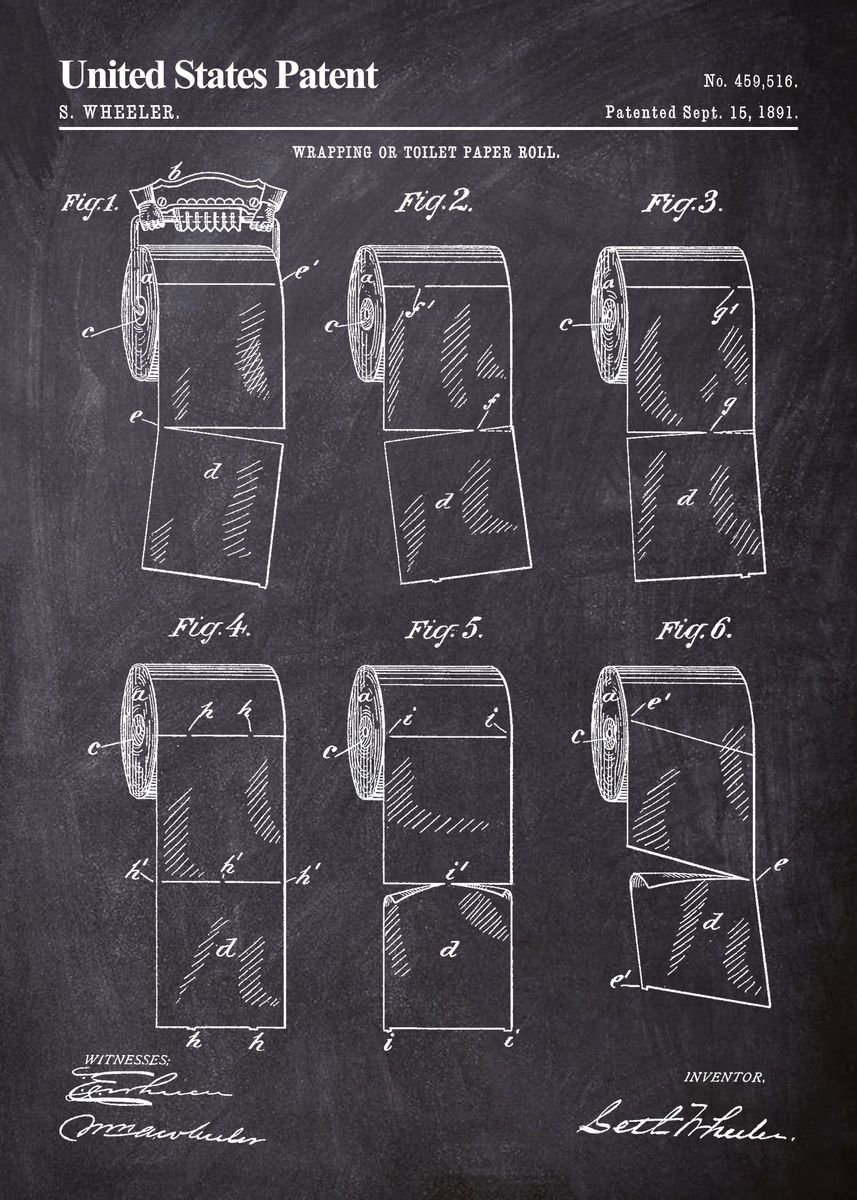 United States Patent
No. 459,516.
S. WHEELER.
Patented Sept. 15, 1891.
WRAPPING OR TOILET PAPER ROLL.
Fig.1.
Fig.2.
Fig.3.
b
a
e'
c
e
d
a
f'
c
f
d
a
g'
c
g
d
Fig.4.
Fig.5.
Fig.6.
a
h
h
c
h'
h'
h'
d
h
h
a
i
i
c
i'
d
i
i
a
e'
c
e
d
e'
WITNESSES;
INVENTOR,
Seth Wheeler.